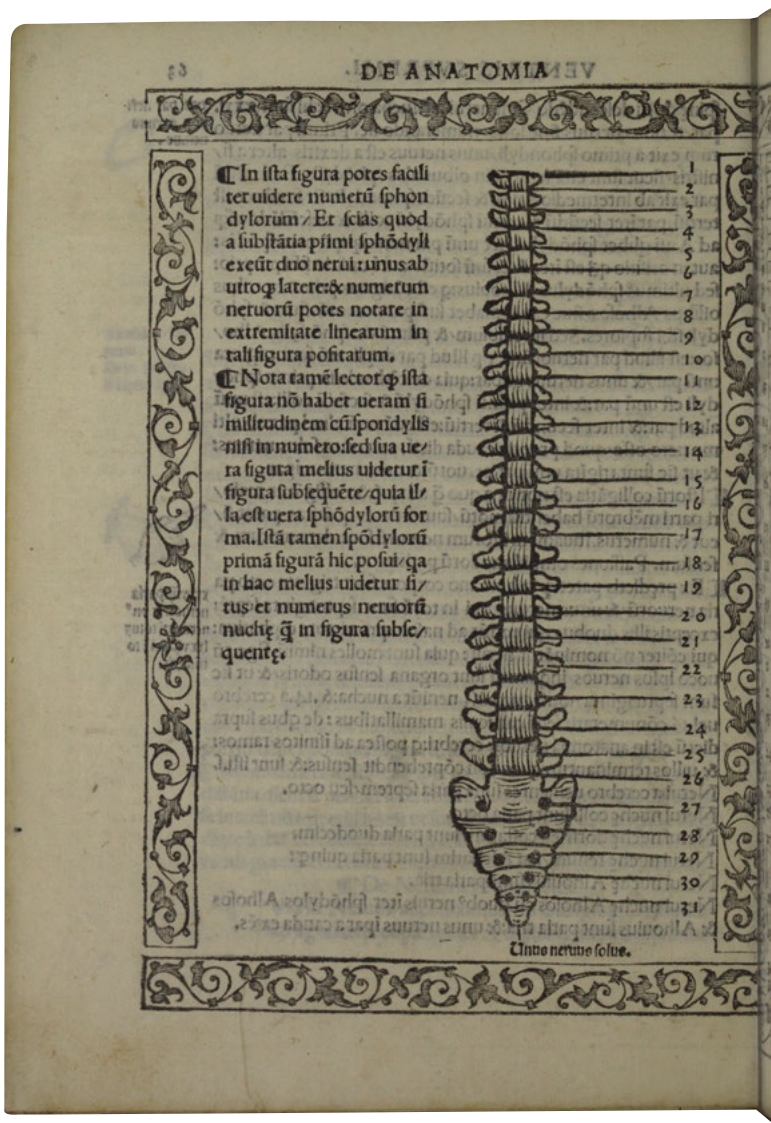 DE ANATOMIA
¶ In ista figura potes facili
ter uidere numerū sphon
dylorum / Et scias quod
a substātia primi sphōdyli
exeūt duo nerui : unus ab
utroqꝫ latere:& numerum
neruorū potes notare in
extremitate linearum in
tali figura positarum.
¶ Nota tamē lector ꝙ ista
figura nō habet ueram si
militudinem cū spondylis
nisi in numero:sed sua ue/
ra figura melius uidetur ī
figura subsequēte/quia il/
la est uera sphōdylorū for
ma.Istā tamen spōdylorū
primā figurā hic posui/qa
in hac melius uidetur si/
tus et numerus neruorū
nuchę q̄ in figura subse/
quentę.
1
2
3
4
5
6
7
8
9
10
11
12
13
14
15
16
17
18
19
20
21
22
23
24
25
26
27
28
29
30
31
Unus neruus solus.